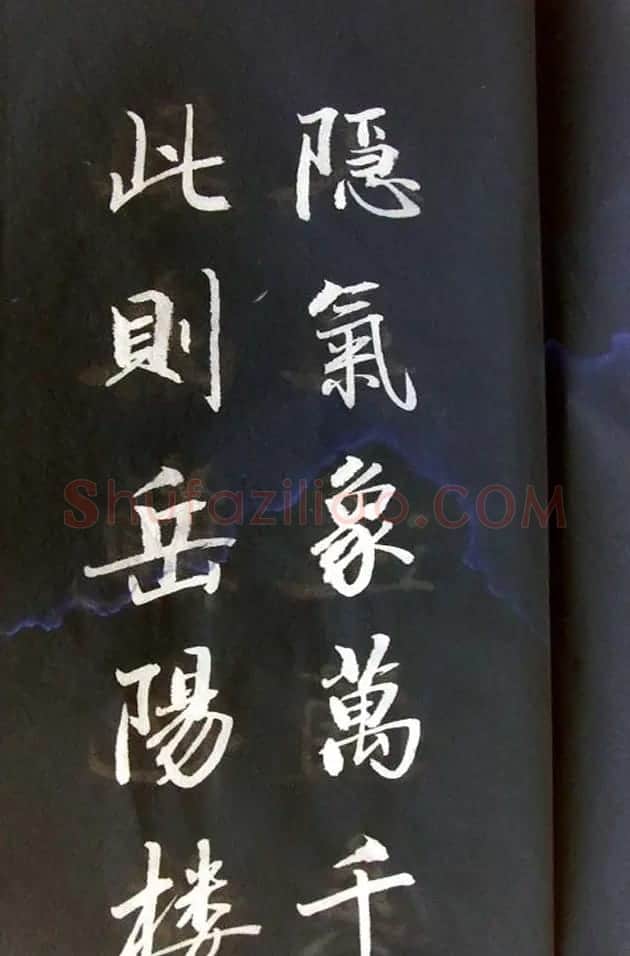 隐氣象萬千
此則岳陽楼
Shufaziliao.COM